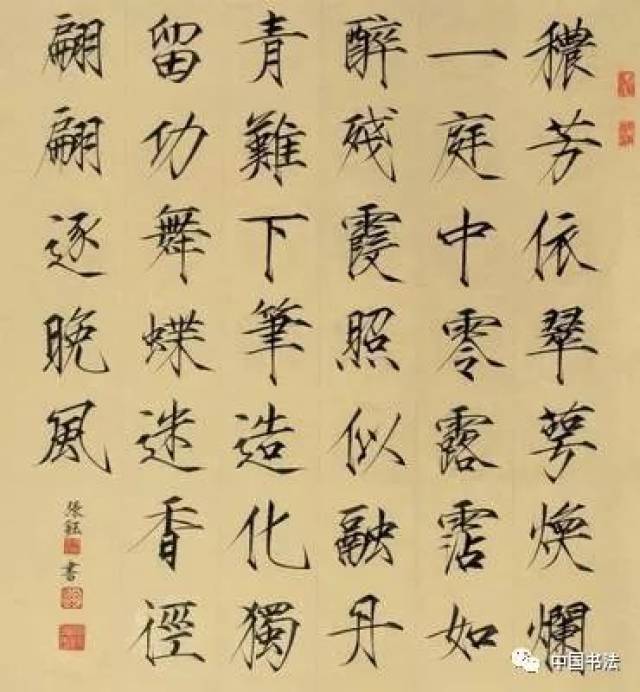 穠芳依翠萼煥爛
一庭中零露霑如
醉殘霞照似融丹
青難下筆造化獨
留功舞蝶迷香徑
翩翩逐晚風
張鈺書
中国书法